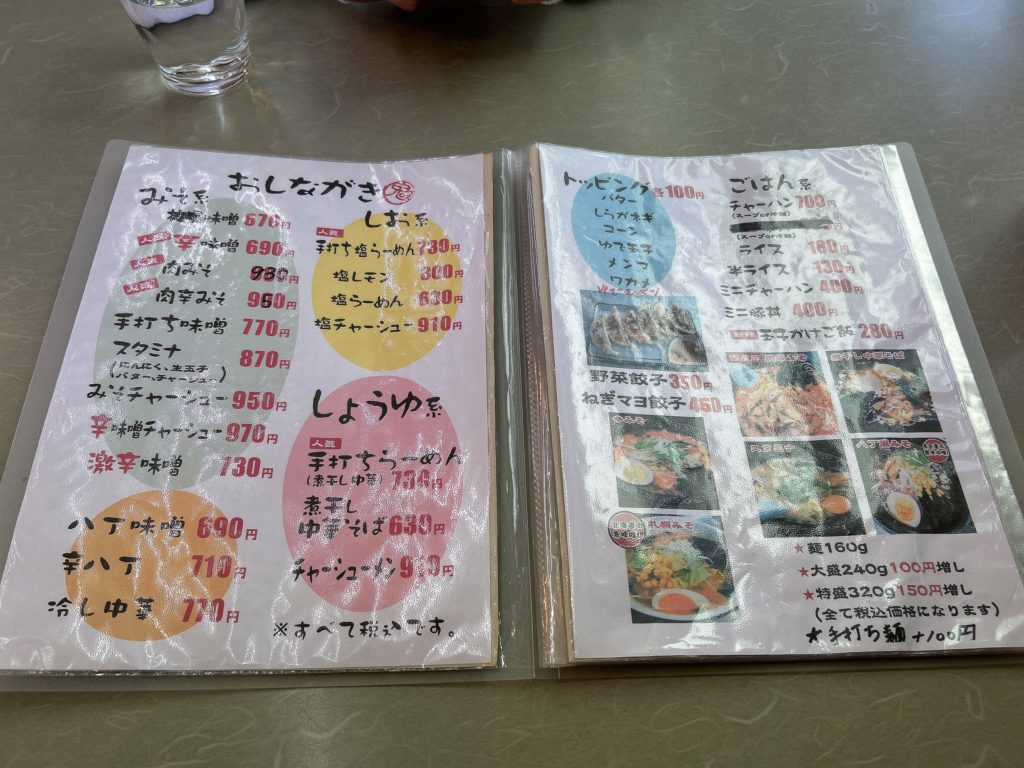 おしながき
みそ系
味噌 670円
人気 辛味噌 690円
人気 肉みそ 930円
人気 肉辛みそ 960円
手打ち味噌 770円
スタミナ 870円
(にんにく、生玉子
バター、チャーシュー)
みそチャーシュー 950円
辛味噌チャーシュー 970円
激辛味噌 730円
八丁味噌 690円
辛八丁 710円
冷し中華 770円
しお系
人気
手打ち塩らーめん 730円
塩レモン 800円
塩らーめん 630円
塩チャーシュー 910円
しょうゆ系
人気
手打ちらーめん
(煮干し中華) 730円
煮干し
中華そば 630円
チャーシューメン 910円
※すべて税込です。
トッピング各100円
バター
しらがネギ
コーン
ゆで玉子
メンマ
ワカメ
野菜餃子 350円
ねぎマヨ餃子 450円
ごはん系
チャーハン 700円
(スープor冷麺)
(スープor冷麺)
ライス 180円
半ライス 130円
ミニチャーハン 400円
ミニ豚丼 400円
玉子かけご飯 280円
煮干し中華そば
スタミナ
北海道の
札幌みそ
★麺160g
★大盛240g100円増し
★特盛320g150円増し
(全て税込価格になります)
★手打ち麺 +100円